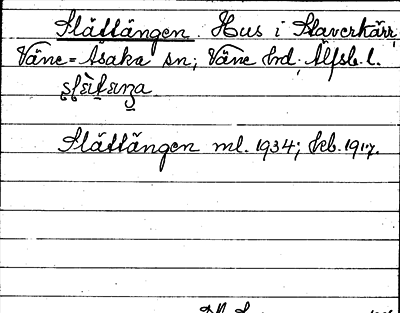 Slättängen. Hus i Klaverkärr,
Väne-Åsaka sn; Väne hd, Älfsb. l.
Slättängen ml. 1934; kb. 1917.